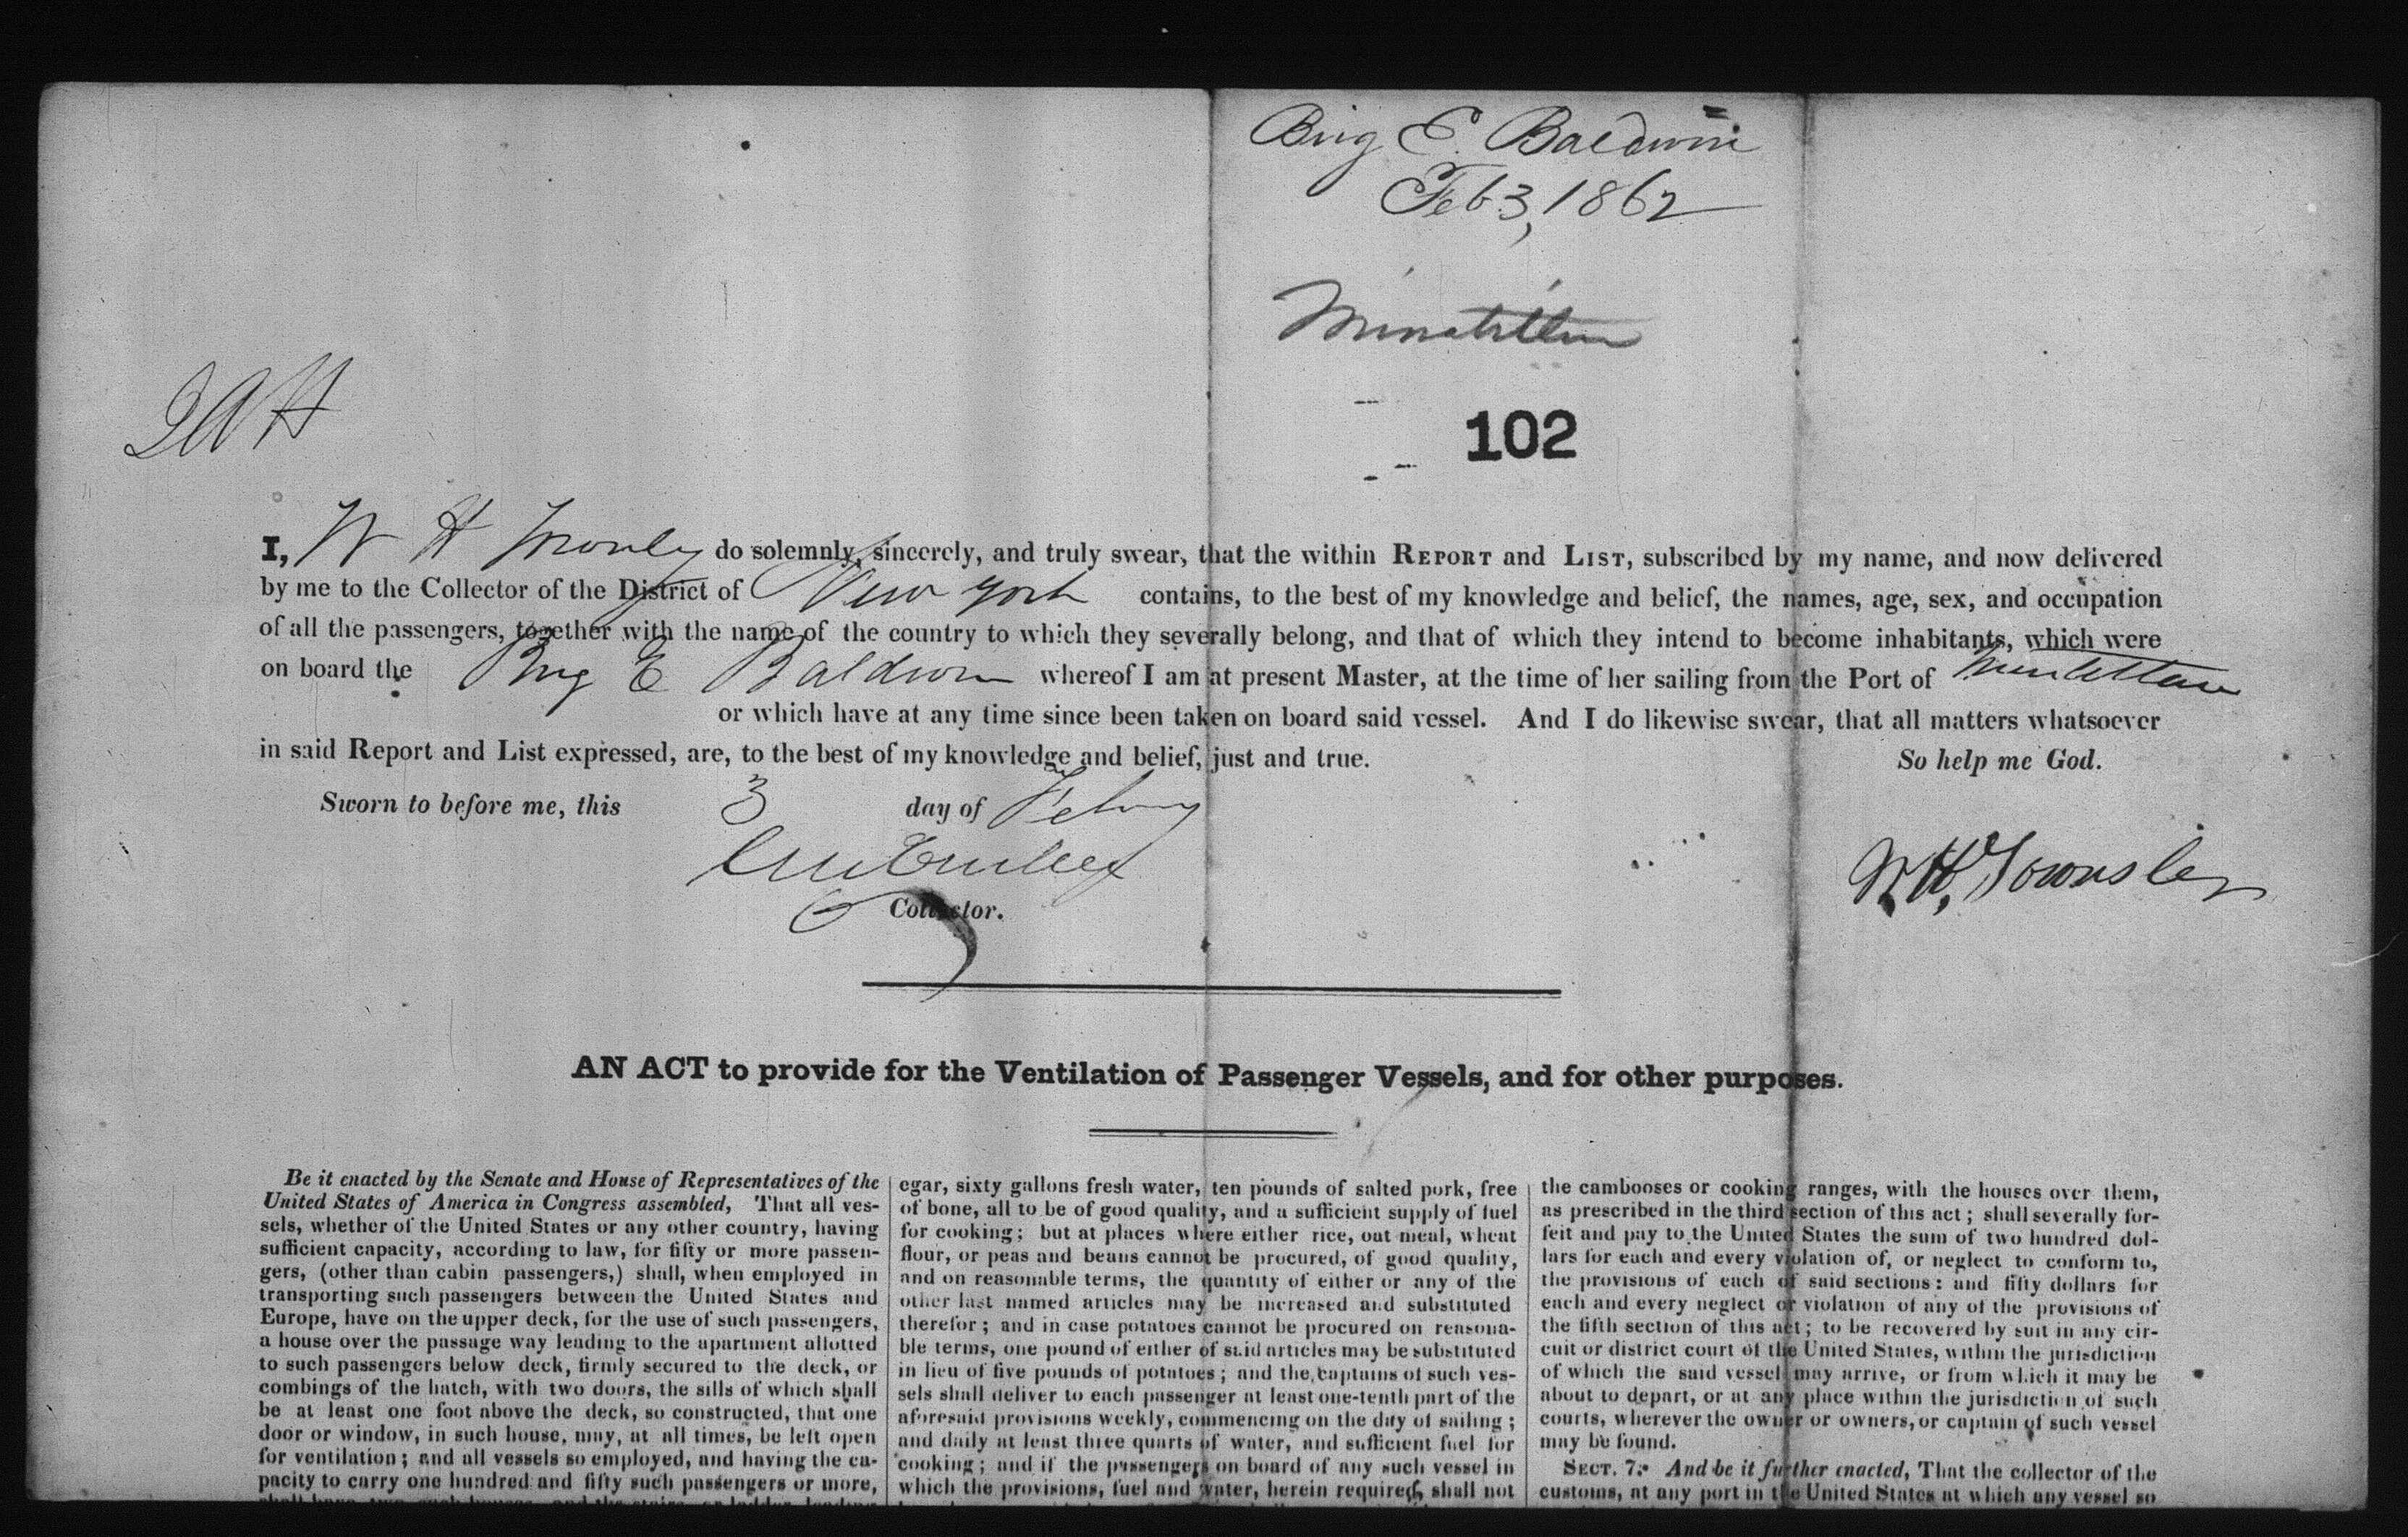 Brig E. Baldwin
Feb 3, 1862
Minatitlan
102
I, W H do solemnly, sincerely, and truly swear, that the within REPORT and LIST, subscribed by my name, and now delivered
by me to the Collector of the District of New York contains, to the best of my knowledge and belief, the names, age, sex, and occupation
of all the passengers, together with the name of the country to which they severally belong, and that of which they intend to become inhabitants, which were
on board the Brig E Baldwin whereof I am at present Master, at the time of her sailing from the Port of Minatitlan
or which have at any time since been taken on board said vessel. And I do likewise swear, that all matters whatsoever
in said Report and List expressed, are, to the best of my knowledge and belief, just and true. So help me God.
Sworn to before me, this 3 day of Febry
W. H. Townsley
Collector.
AN ACT to provide for the Ventilation of Passenger Vessels, and for other purposes.
Be it enacted by the Senate and House of Representatives of the
United States of America in Congress assembled, That all ves-
sels, whether of the United States or any other country, having
sufficient capacity, according to law, for fifty or more passen-
gers, (other than cabin passengers,) shall, when employed in
transporting such passengers between the United States and
Europe, have on the upper deck, for the use of such passengers,
a house over the passage way leading to the apartment allotted
to such passengers below deck, firmly secured to the deck, or
combings of the hatch, with two doors, the sills of which shall
be at least one foot above the deck, so constructed, that one
door or window, in such house, may, at all times, be left open
for ventilation; and all vessels so employed, and having the ca-
pacity to carry one hundred and fifty such passengers or more,
egar, sixty gallons fresh water, ten pounds of salted pork, free
of bone, all to be of good quality, and a sufficient supply of fuel
for cooking; but at places where either rice, oat meal, wheat
flour, or peas and beans cannot be procured, of good quality,
and on reasonable terms, the quantity of either or any of the
other last named articles may be increased and substituted
therefor; and in case potatoes cannot be procured on reasona-
ble terms, one pound of either of said articles may be substituted
in lieu of five pounds of potatoes; and the captains of such ves-
sels shall deliver to each passenger at least one-tenth part of the
aforesaid provisions weekly, commencing on the day of sailing;
and daily at least three quarts of water, and sufficient fuel for
cooking; and if the passengers on board of any such vessel in
which the provisions, fuel and water, herein required, shall not
the cambooses or cooking ranges, with the houses over them,
as prescribed in the third section of this act; shall severally for-
feit and pay to the United States the sum of two hundred dol-
lars for each and every violation of, or neglect to conform to,
the provisions of each of said sections: and fifty dollars for
each and every neglect or violation of any of the provisions of
the fifth section of this act; to be recovered by suit in any cir-
cuit or district court of the United States, within the jurisdiction
of which the said vessel may arrive, or from which it may be
about to depart, or at any place within the jurisdiction of such
courts, wherever the owner or owners, or captain of such vessel
may be found.
SECT. 7. And be it further enacted, That the collector of the
customs, at any port in the United States at which any vessel so